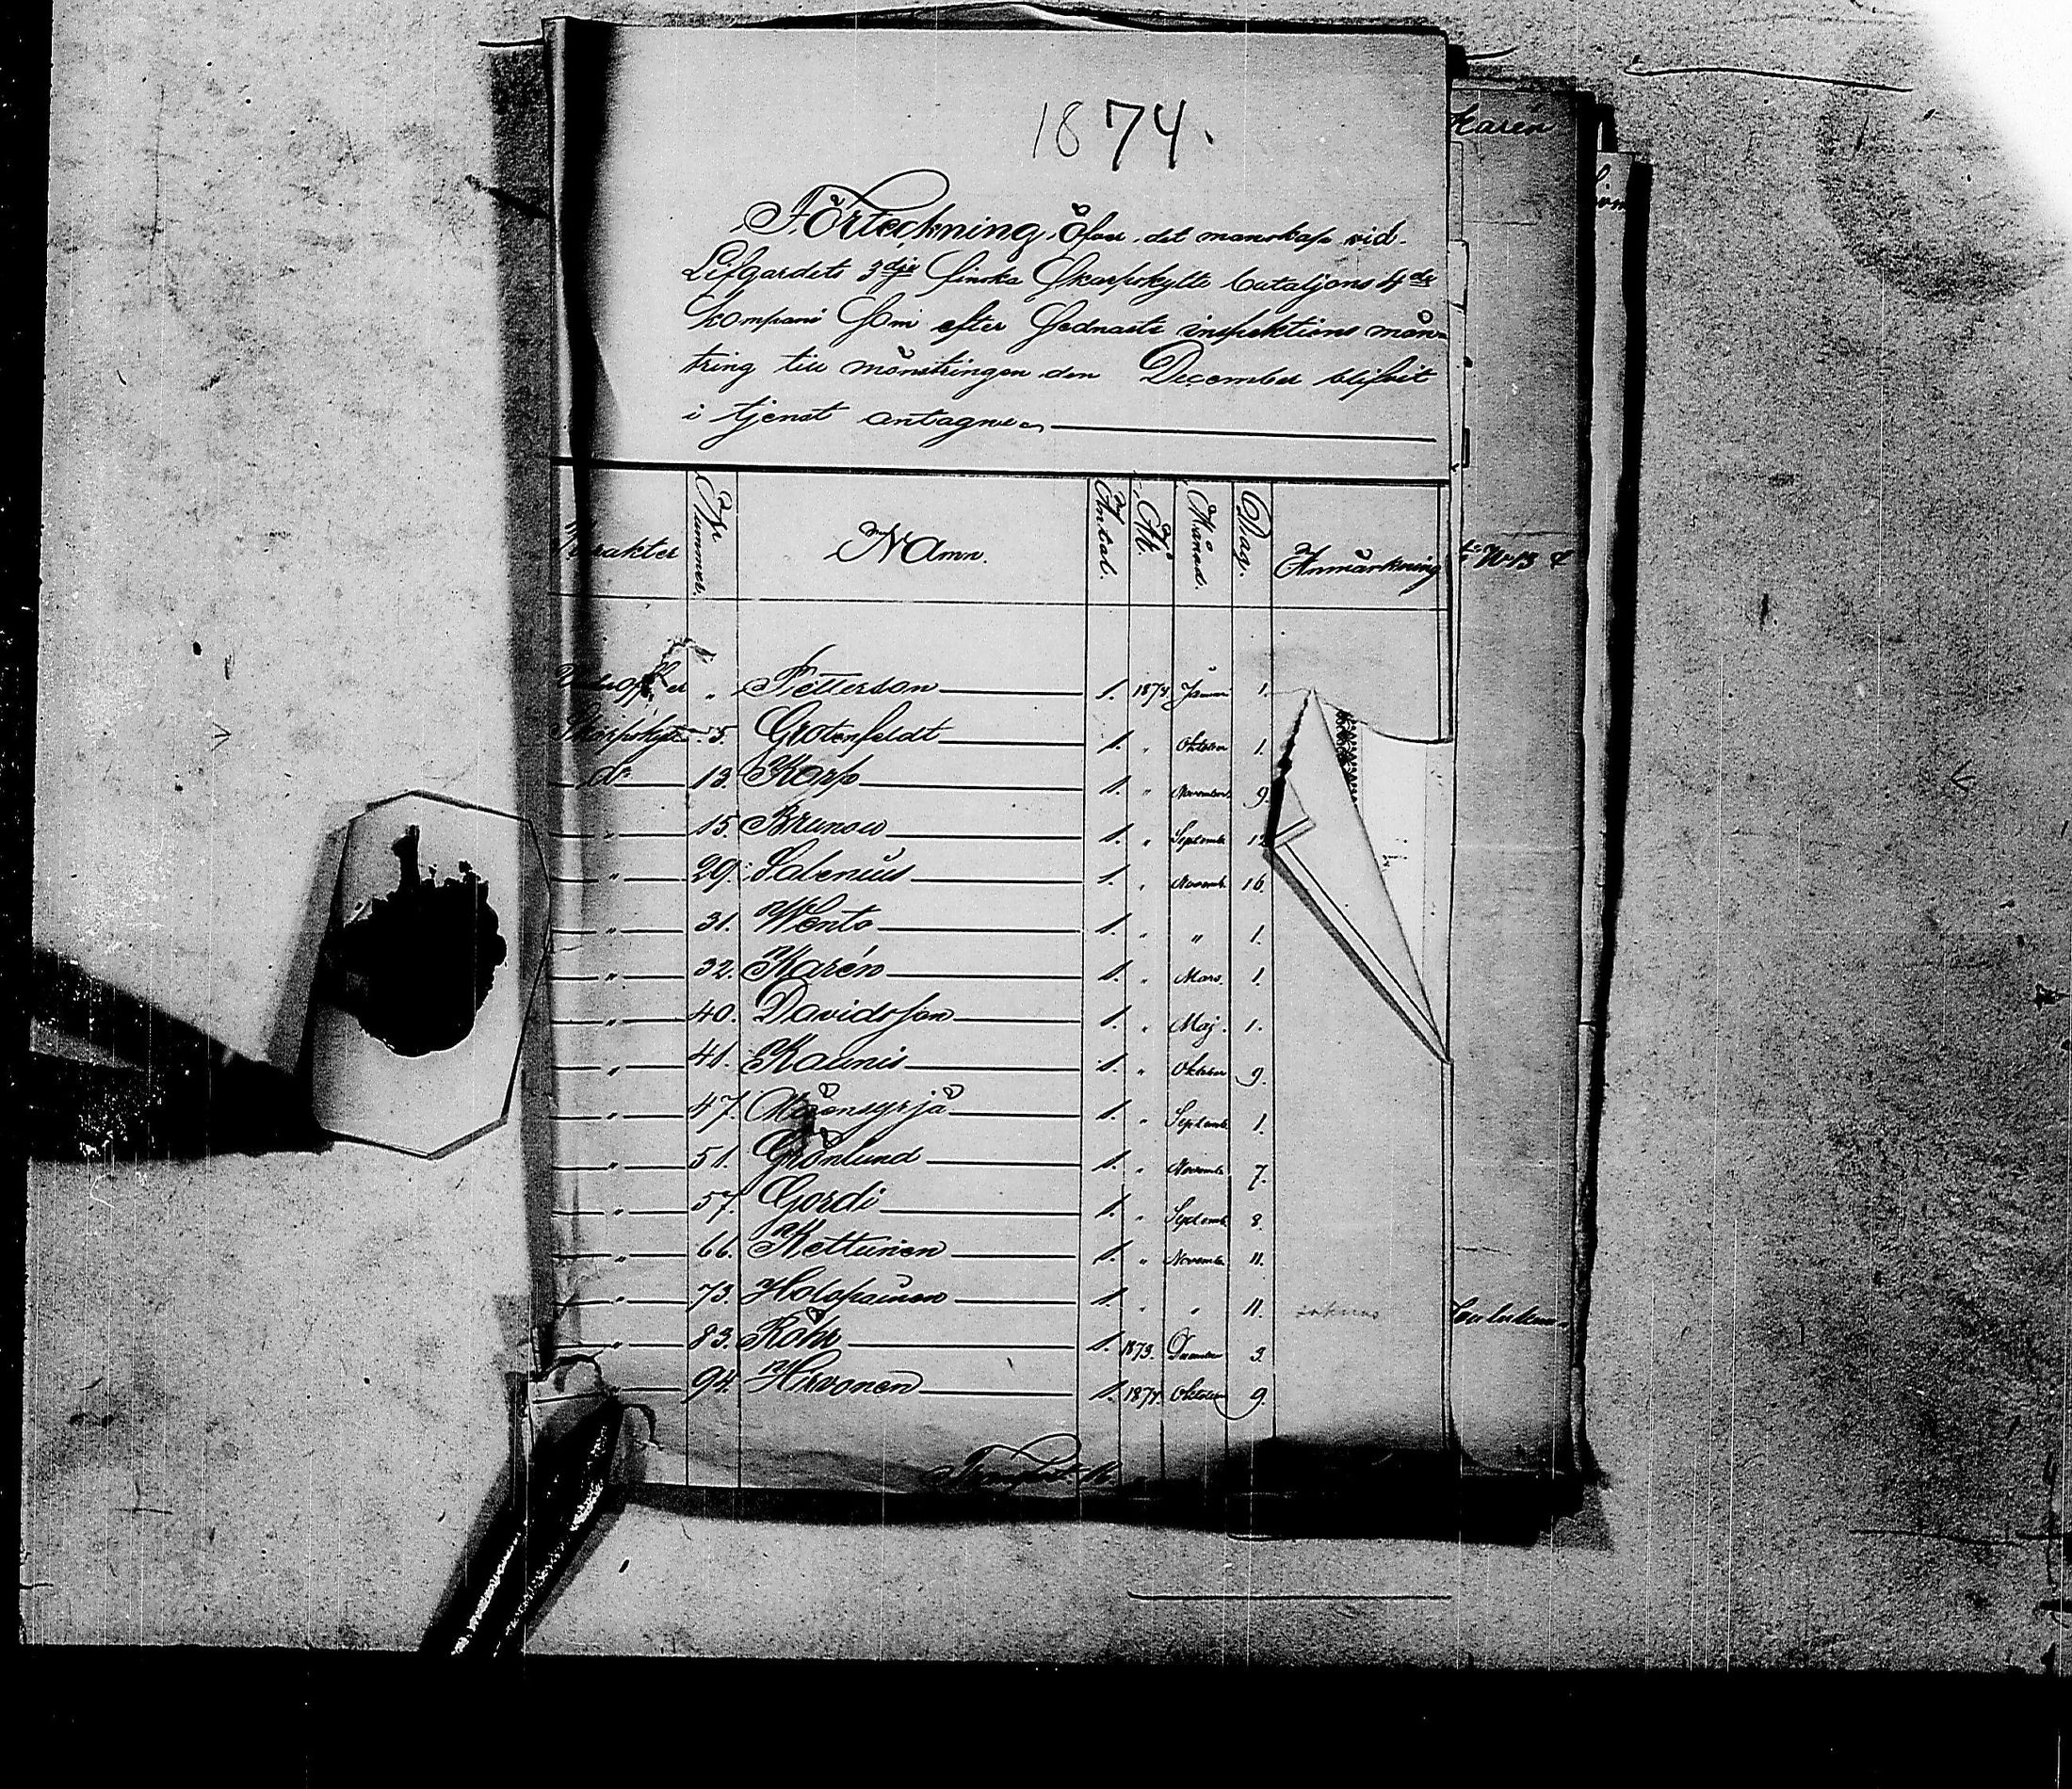 1874.
Förteckning öfver det manskap vid
Lifgardets 3dje Finska Skarpskytte bataljons 4de
Kompani Som efter Sednaste inspektions mön-
string till mönstringen den December blifvit
i tjenst antagne
Karakter Nummer. Namn. Antal. År. Månad. Dag. Anmärkning
Underofficer " Petterson 1. 1874. Januari 1.
Skarpskytt 5. Grotenfeldt 1. " Oktober 1.
do 13. Korp 1. " November 9.
" 15. Brunow 1. " Septemb. 12
" 29. Salenius 1. " Novemb. 16.
" 31. Wento 1. " " 1.
" 32. Karén 1. " Mars. 1.
" 40. Davidsson 1. " Maj. 1.
" 41. Kaunis 1. " Oktober 9.
" 47. 1. " Septemb. 1.
" 51. Grönlund 1. " Novemb. 7.
" 57. Gordi 1. " Septemb. 8.
" 66. Kettunen 1. " Novemb. 11.
" 73. Holopainen 1. " " 11. saknas
" 83. Röhr 1. 1873. December 3.
" 94. Hirvonen 1. 1874. Oktober 9.
Transport. 16
Karén